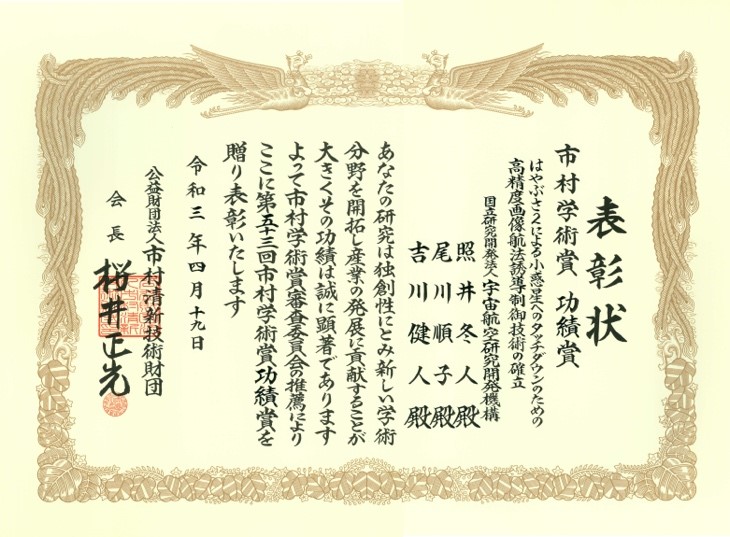 表彰状
市村学術賞 功績賞
はやぶさ2による小惑星へのタッチダウンのための
高精度画像航法誘導制御技術の確立
国立研究開発法人宇宙航空研究開発機構
照井冬人殿
尾川順子殿
吉川健人殿
あなたの研究は独創性にとみ新しい学術
分野を開拓し産業の発展に貢献することが
大きくその功績は誠に顕著であります
よって市村学術賞審査委員会の推薦により
ここに第五十三回市村学術賞功績賞を
贈り表彰いたします
令和三年四月十九日
公益財団法人市村清新技術財団
会長 桜井正光